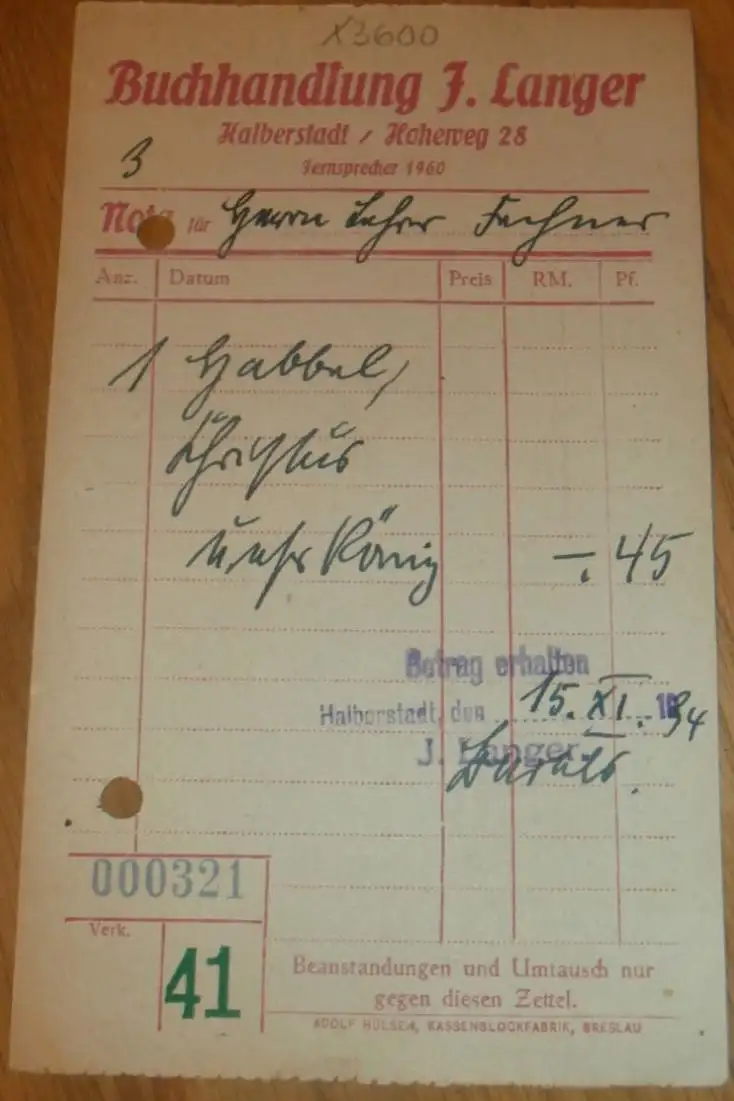 X3600
Buchhandlung J. Langer
Halberstadt / Hoheweg 28
Fernsprecher 1960
3
Nota für Herrn Lehrer Fechner
Anz. Datum Preis RM. Pf.
1 Habbel,
Christus
unser König -.45
Betrag erhalten
Halberstadt, den 15. XI. 1934
J. Langer
000321
Verk.
41
Beanstandungen und Umtausch nur
gegen diesen Zettel.
ADOLF HÜLSEN, KASSENBLOCKFABRIK, BRESLAU